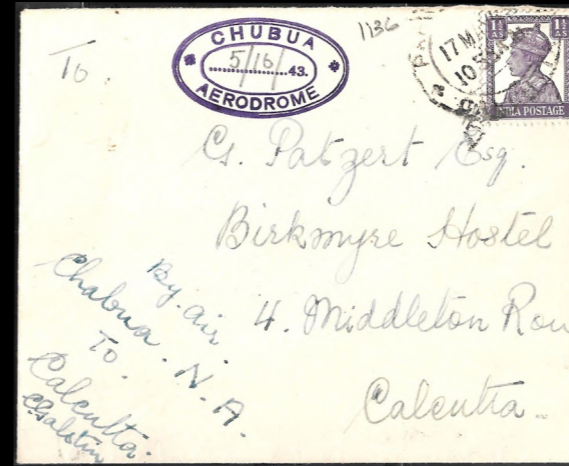 1136
CHUBUA
5/16/ 43.
AERODROME
17 MA
10
1½ 1½
AS AS
INDIA POSTAGE
To.
G. Patzert Esq.
Birkmyre Hostel
4. Middleton Row
Calcutta.
By. air.
Chabua. N. A.
To.
Calcutta.